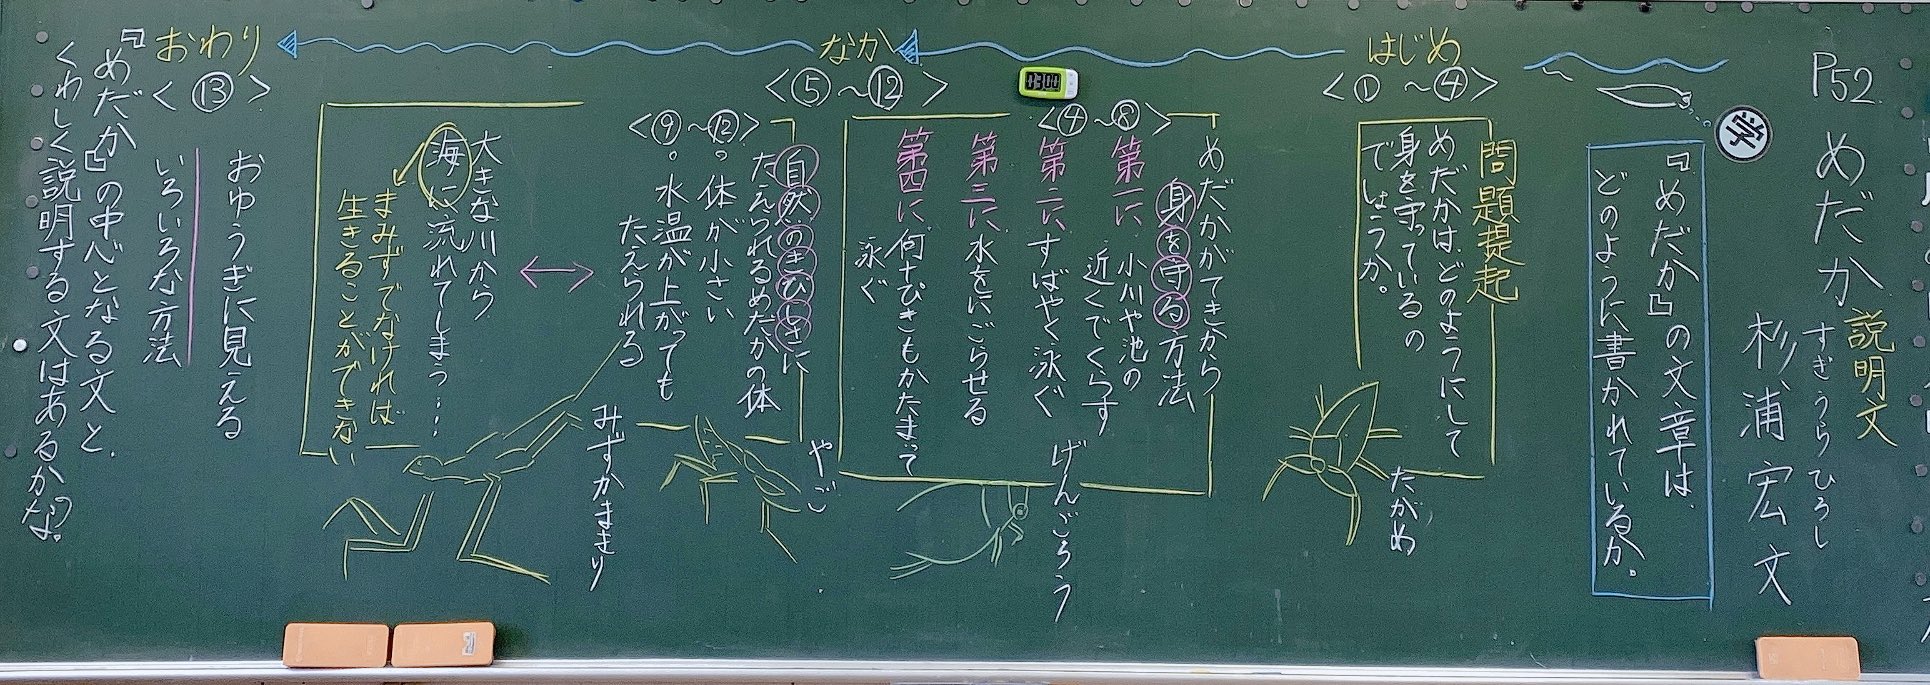 P52
めだか 説明文
すぎうらひろし
杉浦宏 文
学
『めだか』の文章は、
どのように書かれているか。
はじめ
<①~④>
問題提起
めだかは、どのようにして
身を守っているの
でしょうか。
たがめ
なか
<⑤~⑫>
03:00
<④~⑧>
めだかがてきから
身を守る方法
第一に 小川や池の
近くでくらす
第二に すばやく泳ぐ
第三に 水をにごらせる
第四に 何十ぴきもかたまって
泳ぐ
げんごろう
<⑨~⑫>
自然のきびしさに
たえられるめだかの体
・体が小さい
・水温が上がっても
たえられる
やご
みずかまきり
大きな川から
海に流れてしまう…
まみずでなければ
生きることができない
おわり
<⑬>
おゆうぎに見える
いろいろな方法
『めだか』の中心となる文と、
くわしく説明する文はあるかな?。